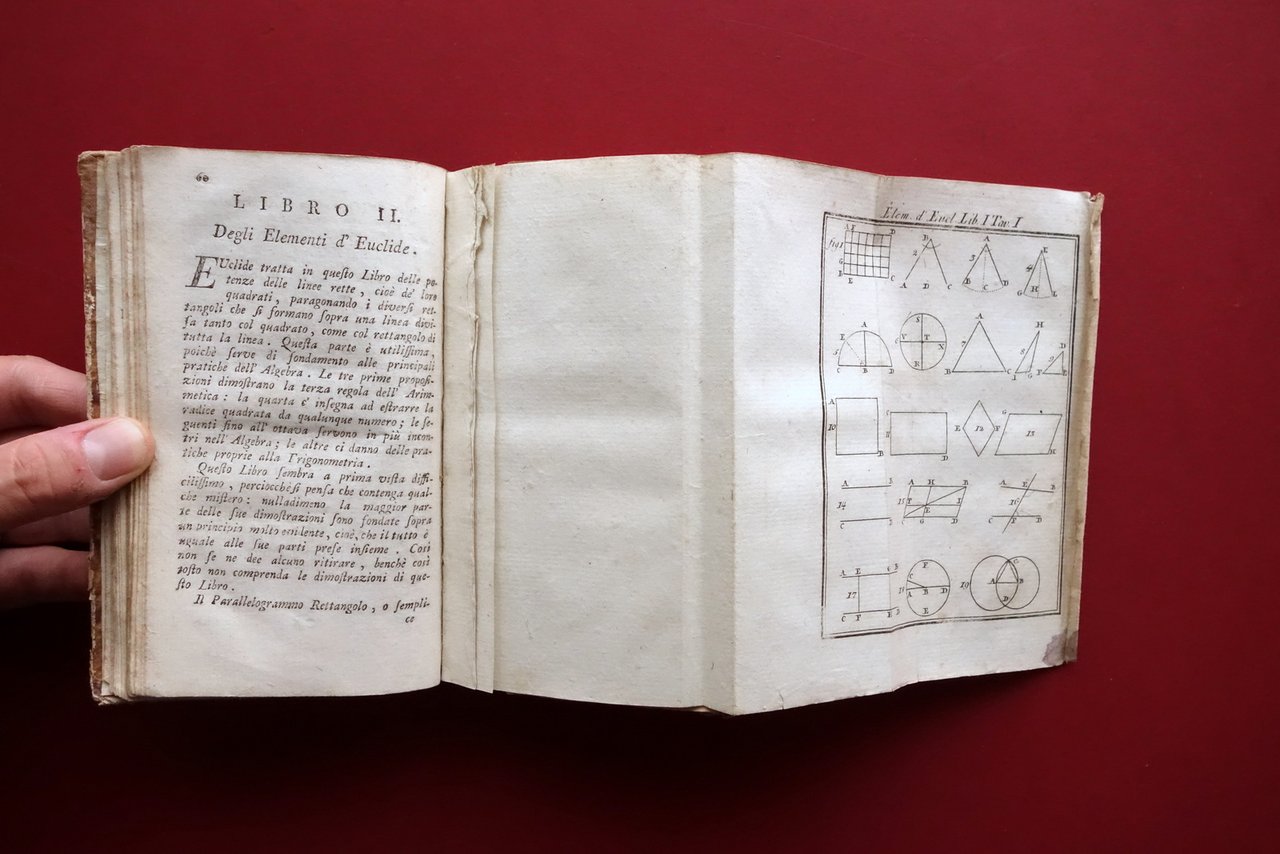 60
LIBRO II.
Degli Elementi d' Euclide.
EUclide tratta in queſto Libro delle po-
tenze delle linee rette, cioè de' loro
quadrati, paragonando i diverſi ret-
tangoli che ſi formano ſopra una linea divi-
ſa tanto col quadrato, come col rettangolo di
tutta la linea. Queſta parte è utiliſſima,
poichè ſerve di fondamento alle principali
pratiche dell' Algebra. Le tre prime propoſi-
zioni dimoſtrano la terza regola dell' Arim-
metica: la quarta c' inſegna ad eſtrarre la
radice quadrata da qualunque numero; le ſe-
guenti fino all' ottava ſervono in più incon-
tri nell' Algebra; le altre ci danno delle pra-
tiche proprie alla Trigonometria.
Queſto Libro ſembra a prima viſta diffi-
ciliſſimo, perciocchè ſi penſa che contenga qual-
che miſtero: nulladimeno la maggior par-
te delle ſue dimoſtrazioni ſono fondate ſopra
un principio molto evidente, cioè, che il tutto è
uguale alle ſue parti preſe inſieme. Così
non ſe ne dee alcuno ritirare, benchè così
toſto non comprenda le dimoſtrazioni di que-
ſto Libro.
Il Parallelogrammo Rettangolo, o ſempli-
ce
Elem. d'Eucl. Lib. I Tav. I
fig 1 A D B E
2 B A D C
3 A B C D
4 E G H L
5 E A D C B D
S V T X R
7 A B C
8 H I G
9 D F E
10 A B
11 C D
12 E F
13 G H
14 A B C D
15 A H B T I E C G D
16 A E B C F D
17 A E B C F D
18 C F A B D E
19 C A B D